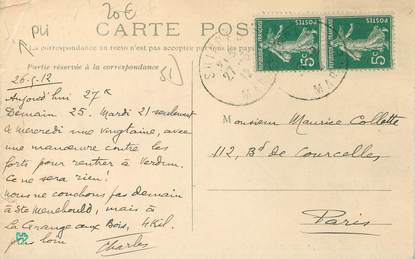 20€
PLI
CARTE POS
La correspondance au recto n'est pas acceptée par tous les pays
Partie réservée à la correspondance
51
26.5.12
Aujourd'hui 27K
Demain 25. Mardi 21 seulement
& mercredi une vingtaine, avec
une manœuvre contre les
forts pour rentrer à Verdun.
Ce ne sera rien!
nous ne couchons pas demain
à Ste Menehould, mais à
La Grange aux Bois, 4 Kil.
plus loin
Charles
REPUBLIQUE FRANÇAISE
POSTES
5c
REPUBLIQUE FRANÇAISE
POSTES
5c
MAR
Monsieur Maurice Collette
112, Bd de Courcelles.
Paris